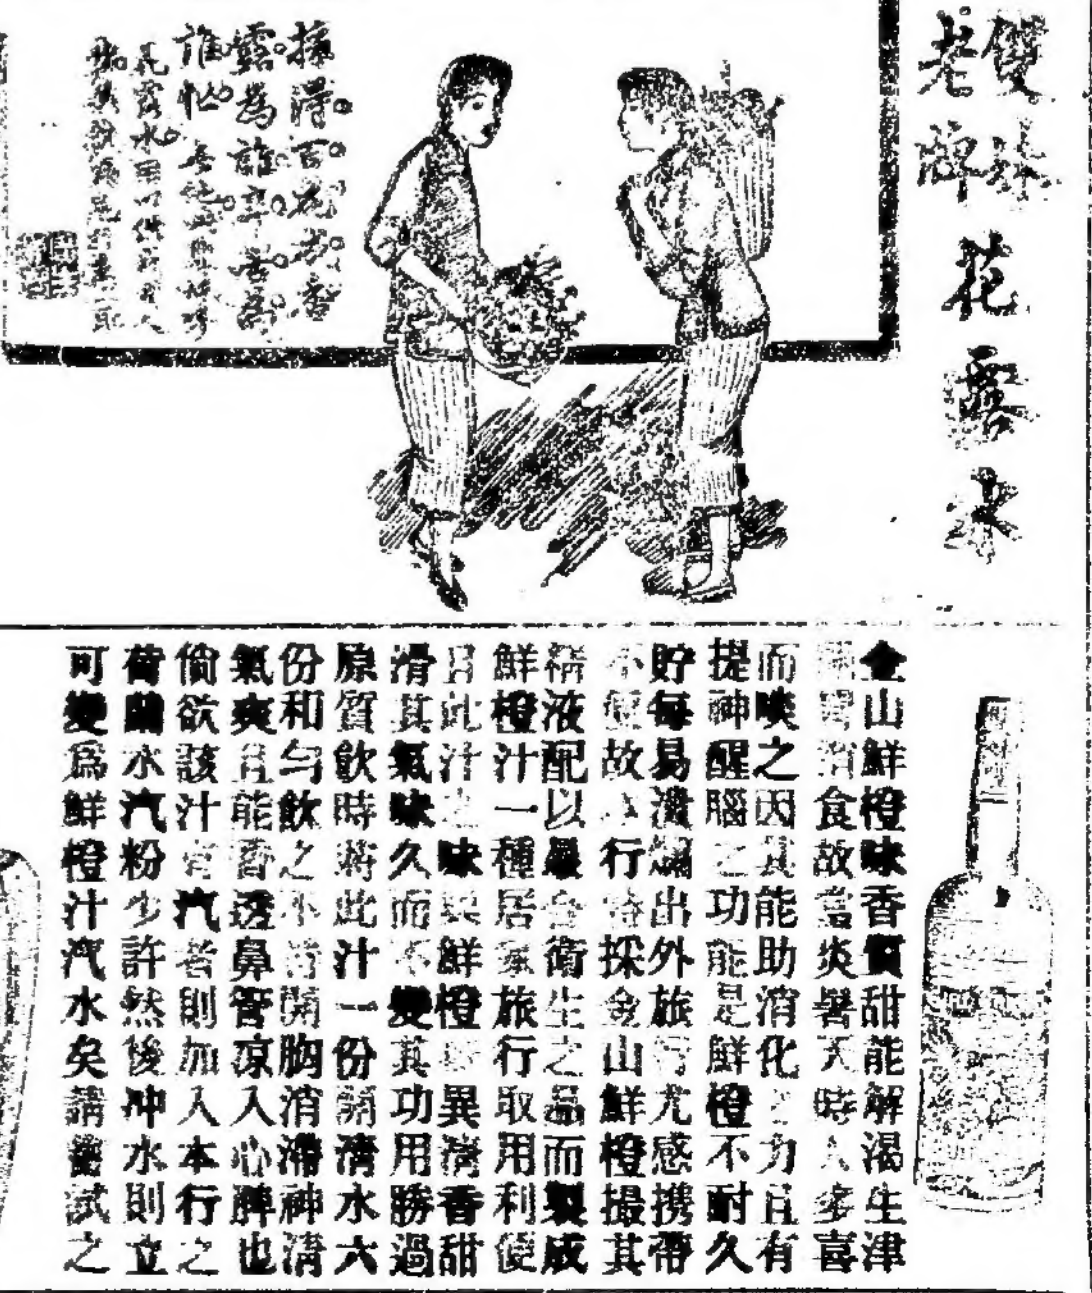 雙妹
老牌
花露水
採得百花芳香
露為誰辛苦為
誰忙
花露水
金山鮮橙味香質甜能解渴生津
開胃消食故當炎暑天時人多喜
而啖之因其能助消化之力且有
提神醒腦之功能是鮮橙不耐久
貯每易潰爛出外旅行尤感携帶
不便故本行特採金山鮮橙撮其
精液配以最合衛生之品而製成
鮮橙汁一種居家旅行取用利便
且此汁之味與鮮橙無異清香甜
滑其氣味久而不變其功用勝過
原質飲時將此汁一份調清水六
份和勻飲之不啻開胸消滯神清
氣爽且能香透鼻管凉入心脾也
倘欲該汁有汽者則加入本行之
荷蘭水汽粉少許然後冲水則立
可變爲鮮橙汁汽水矣請嘗試之